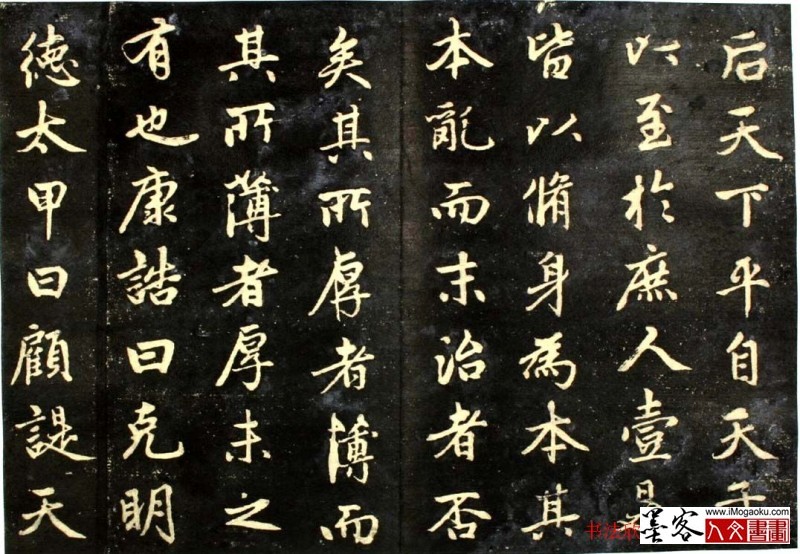 后天下平自天子
以至於庶人壹是
皆以脩身為本其
本亂而末治者否
矣其所厚者薄而
其所薄者厚未之
有也康誥曰克明
德太甲曰顧諟天
书法
墨客
www.iMogaoku.com
人文書畫